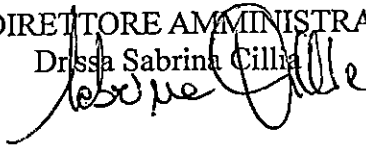 DIRETTORE AMMINISTRA
Dr.ssa Sabrina Cillia